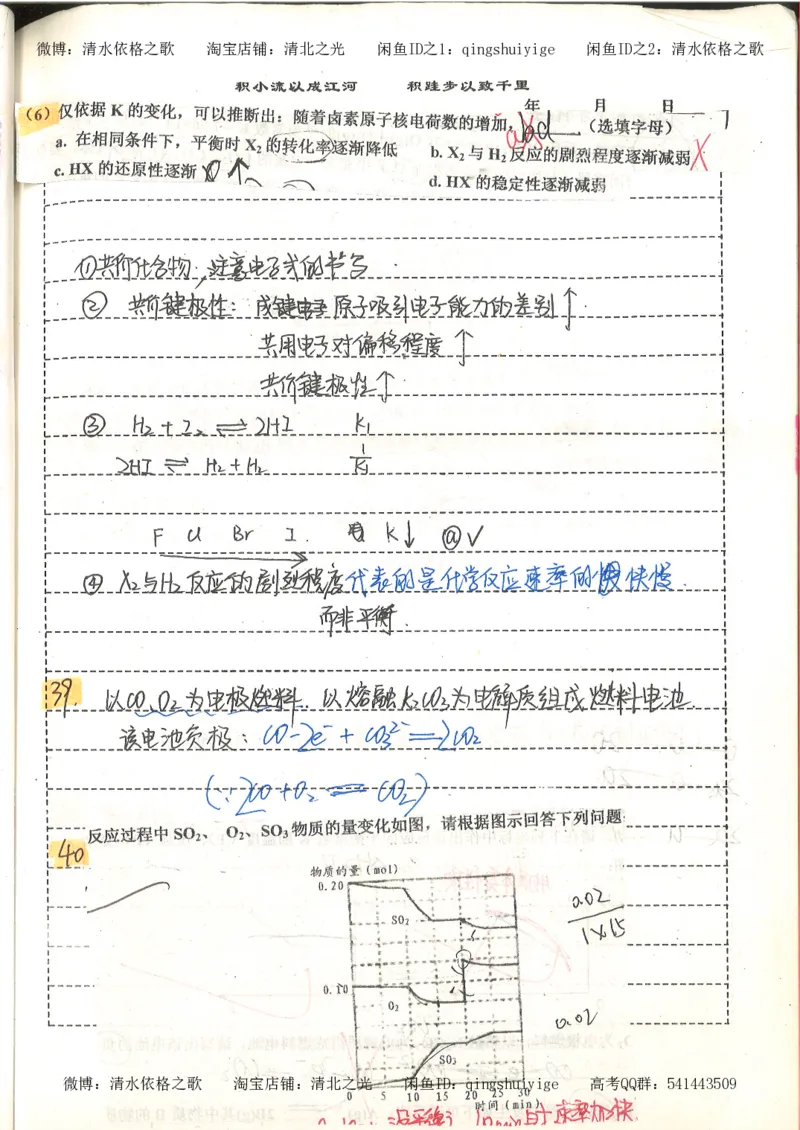 微博: 清水依格之歌 淘宝店铺: 清北之光 闲鱼ID之1: qingshuiyige 闲鱼ID之2: 清水依格之歌
积小流以成江河 积跬步以致千里
年 月 日
(6) 仅依据 K 的变化，可以推断出：随着卤素原子核电荷数的增加，ad（选填字母）
a. 在相同条件下，平衡时 X₂ 的转化率逐渐降低 b. X₂ 与 H₂ 反应的剧烈程度逐渐减弱 X
c. HX 的还原性逐渐 ↑ d. HX 的稳定性逐渐减弱
① 共价化合物：注意电子式的书写
② 共价键极性：成键电子 原子吸引电子能力的差别↑
共用电子对偏移程度↑
共价键极性↑
③ H₂ + I₂ ⇌ 2HI K₁
2HI ⇌ H₂ + H₂ 1/K₁
F Cl Br I. K↓ ⓐ√
④ X₂与H₂反应的剧烈程度代表的是化学反应速率的快慢
而非平衡.
39. 以CO、O₂为电极燃料，以熔融K₂CO₃为电解质组成燃料电池.
该电池负极：CO-2e⁻ + CO₃²⁻ = 2CO₂
(∵2CO+O₂ = CO₂)
反应过程中 SO₂、 O₂、 SO₃ 物质的量变化如图，请根据图示回答下列问题：
40
物质的量 (mol)
0.20
SO₂
0.02
1×15
0.10
O₂
0.02
SO₃
微博: 清水依格之歌 淘宝店铺: 清北之光 闲鱼ID: qingshuiyige 高考QQ群: 541443509
0 5 10 15 20 25 30
时间 (min)
速率加快